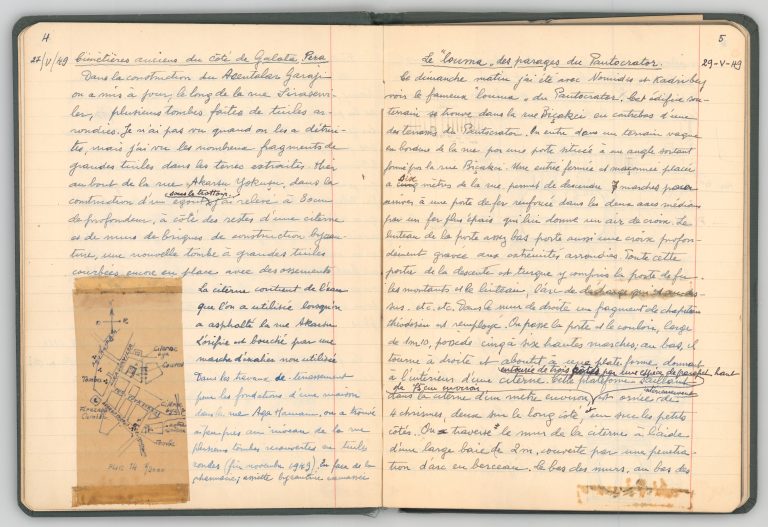 4
27/V/49 Cimetières anciens du côté de Galata, Pera
Dans la construction du Acentalar Garaji
on a mis à jour, le long de la rue Siraservi-
ler, plusieurs tombes faites de tuiles ar-
rondies. Je n'ai pas vu quand on les a détrui-
tes, mais j'ai vu les nombreux fragments de
grandes tuiles dans les terres extraites. Hier
au bout de la rue Akarsu Yokuşu, dans la
sous le trottoir
construction d'un egout, j'ai relevé à 30cm
de profondeur, à côté des restes d'une citerne
et de murs de briques de construction byzan-
tine, une nouvelle tombe à grandes tuiles
courbées encore en place avec des ossements
La citerne contient de l'eau
que l'on a utilisée lorsqu'on
a asphalté la rue Akarsu
L'orifice est bouché par une
marche d'escalier non utilisée
Dans les travaux de terrassement
pour les fondations d'une maison
dans la rue Ağa Hamam, on a trouvé
à peu près au niveau de la rue
plusieurs tombes recouvertes en tuiles
rondes (fin novembre 1949). En face de la
pharmacie; assiette byzantine ramassée
Citerne
Tombe
Citerne
Tombe
5
Le "louma" des parages du Pantocrator.
29-V-49
Ce dimanche matin j'ai été avec Nomidis et Kadri bey
voir le fameux "louma" du Pantocrator. Cet édifice sou-
terrain se trouve dans la rue Biçakci en contrebas d'une
des terrasses du Pantocrator. On entre dans un terrain vague
en bordure de la rue par une porte située à un angle sortant
formé par la rue Biçakci. Une entrée fermée et maçonnée placée
Dix
à cinq mètres de la rue permet de descendre 7 marches pour
arriver à une porte de fer renforcée dans les deux axes médians
par un fer plus épais qui lui donne un air de croix. Le
linteau de la porte assez bas porte aussi une croix profon-
dément gravée aux extrémités arrondies. Toute cette
partie de la descente est turque y compris la porte de fer.
les montants et le linteau, l'arc de décharge qui est au des-
sus. etc. etc. Dans le mur de droite un fragment de chapiteau
théodosien est remployé. On passe la porte et le couloir, large
de 1m,10, possède cinq à six hautes marches; au bas, il
tourne à droite et aboutit à une plate forme donnant
entourée de trois côtés par une espèce de parapet haut
à l'intérieur d'une citerne. Cette plateforme saillant
de 75cm environ
dans la citerne d'un mètre environ, est ornée de
4 chrismes, deux sur le long côté, et un sur les petits
côtés. On traverse le mur de la citerne à l'aide
d'une large baie de 2m, couverte par une pénétra-
tion d'arc en berceau. Le bas des murs, au bas des